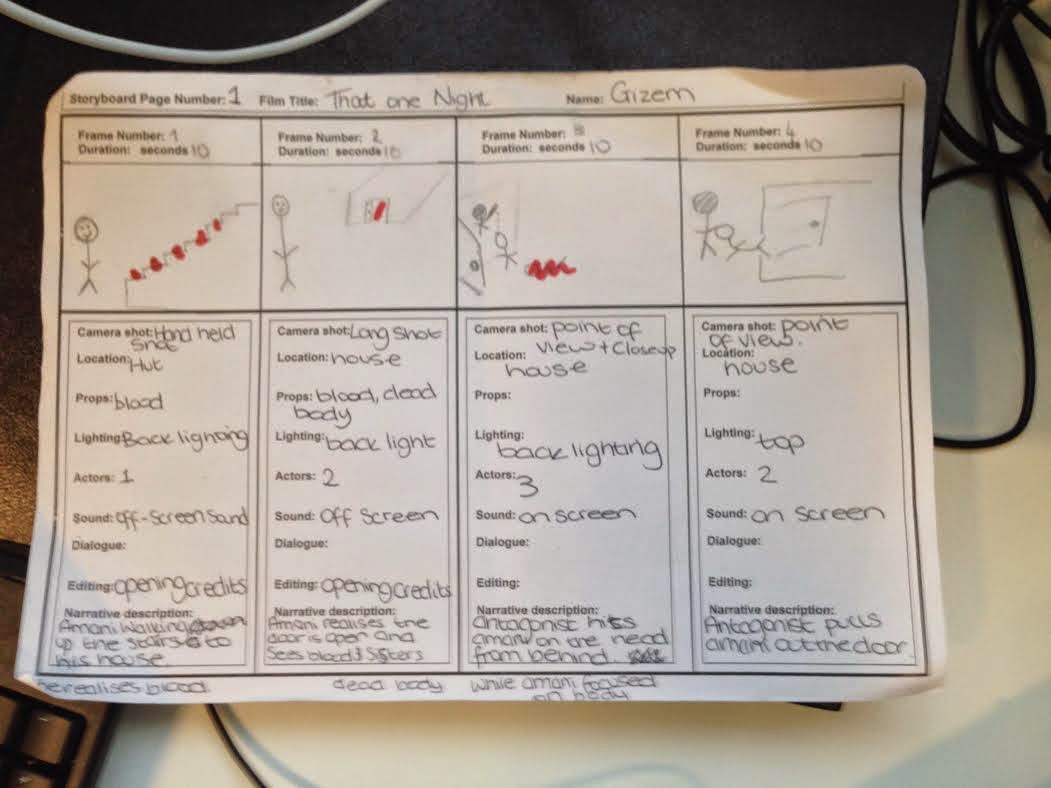 Storyboard Page Number: 1 Film Title: That one Night Name: Gizem
Frame Number: 1
Duration: seconds 10
Camera shot: Hand held
shot
Location:
Hut
Props: blood
Lighting: Back lighting
Actors: 1
Sound: off-screen sound
Dialogue:
Editing: opening credits
Narrative description:
Amani walking
up the stairs to
his house.
he realises blood.
Frame Number: 2
Duration: seconds 10
Camera shot: Long shot
Location: house
Props: blood, dead
body
Lighting: back light
Actors: 2
Sound: off screen
Dialogue:
Editing: opening credits
Narrative description:
Amani realises the
door is open and
sees blood & sisters
dead body
Frame Number: 3
Duration: seconds 10
Camera shot: point of
view + closeup
Location:
house
Props:
Lighting:
back lighting
Actors: 3
Sound: on screen
Dialogue:
Editing:
Narrative description:
Antagonist hits
amani on the head
from behind.
while amani focused
on body
Frame Number: 4
Duration: seconds 10
Camera shot: point
of view.
Location:
house
Props:
Lighting: top
Actors: 2
Sound: on screen
Dialogue:
Editing:
Narrative description:
Antagonist pulls
amani out the door.